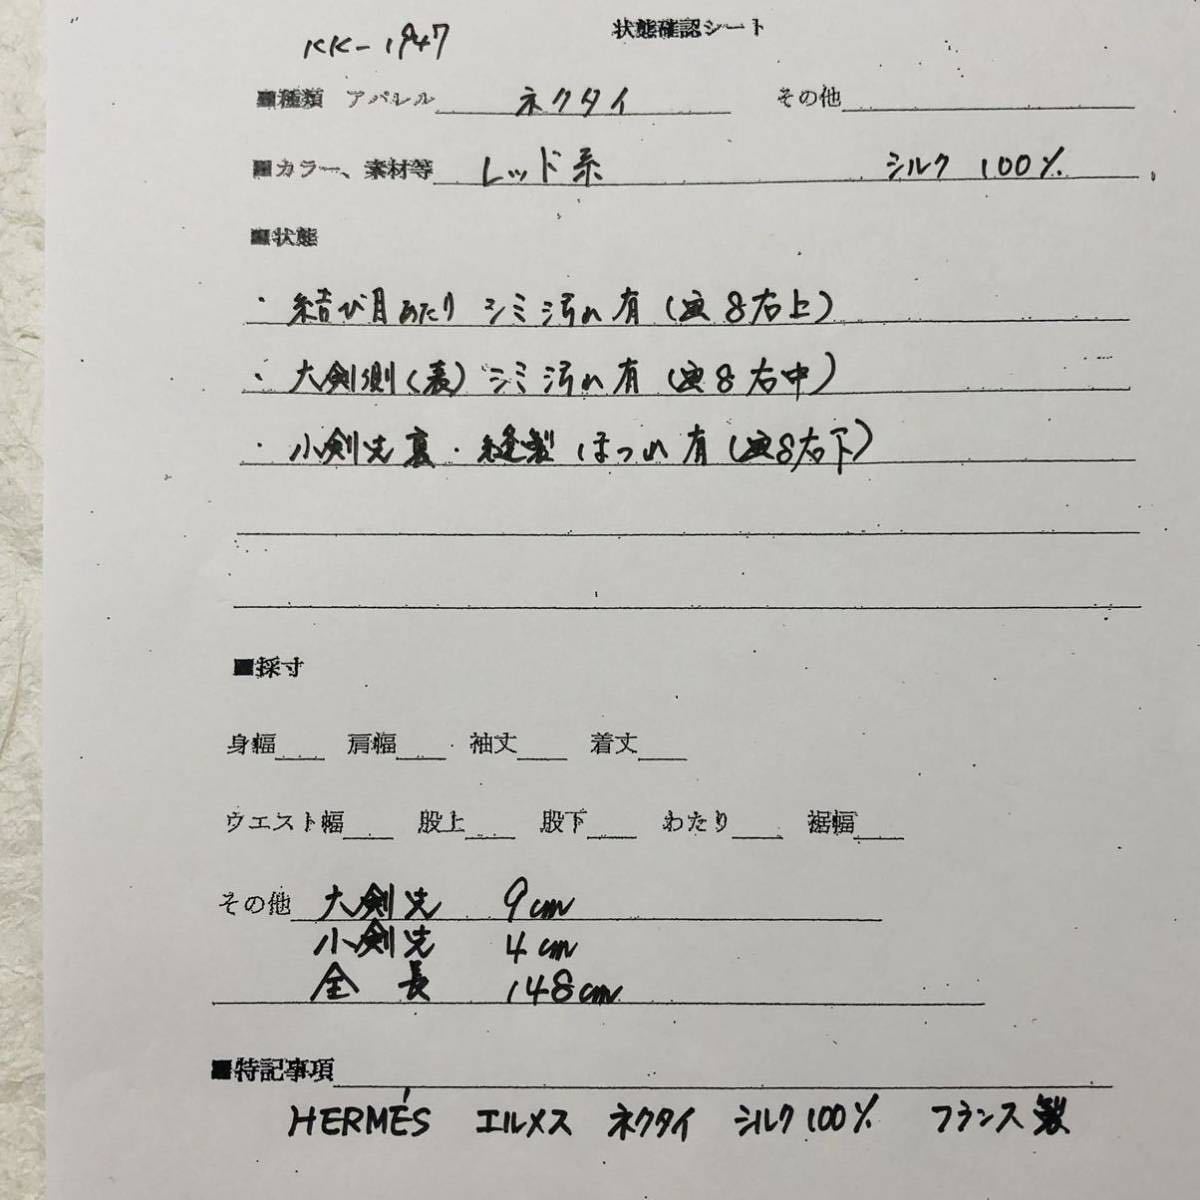 状態確認シート
KK-1947
■種類 アパレル ネクタイ その他
■カラー、素材等 レッド系 シルク 100%
■状態
・結び目あたり シミ汚れ有(画8右上)
・大剣側(表)シミ汚れ有(画8右中)
・小剣先裏・縫製 ほつれ有(画8右下)
■採寸
身幅 肩幅 袖丈 着丈
ウエスト幅 股上 股下 わたり 裾幅
その他 大剣先 9cm
小剣先 4cm
全長 148cm
■特記事項
HERMÉS エルメス ネクタイ シルク100% フランス製